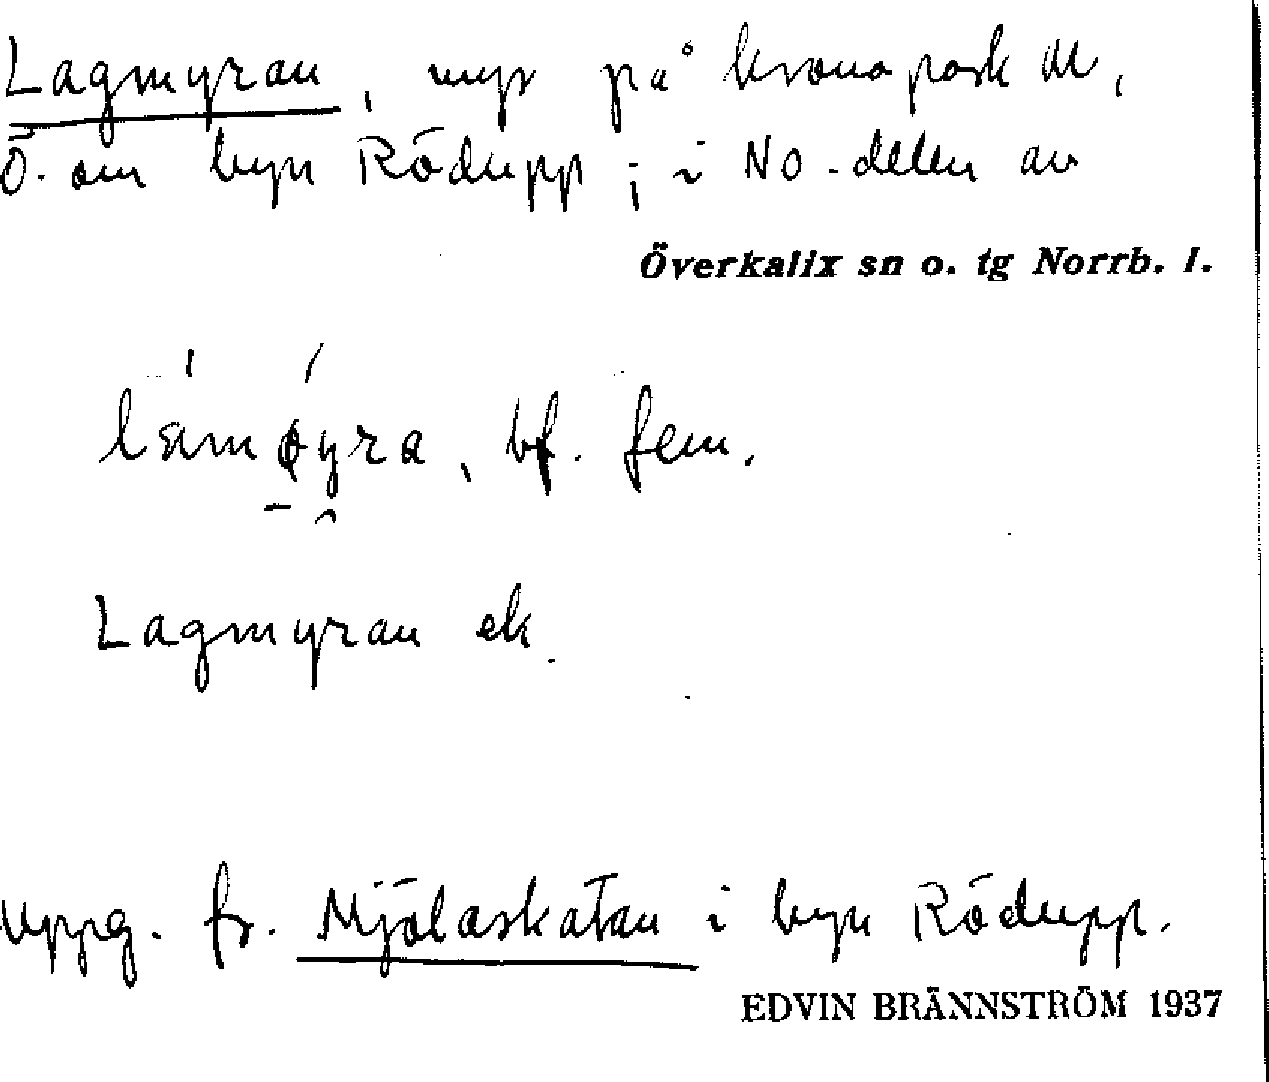 Lagmyran, myr på kronopark M,
Ö. om byn Rödupp; i NO-delen av
Överkalix sn o. tg Norrb. l.
bf. fem.
Lagmyran ek.
Uppg. fr. Mjölaskatan i byn Rödupp.
EDVIN BRÄNNSTRÖM 1937